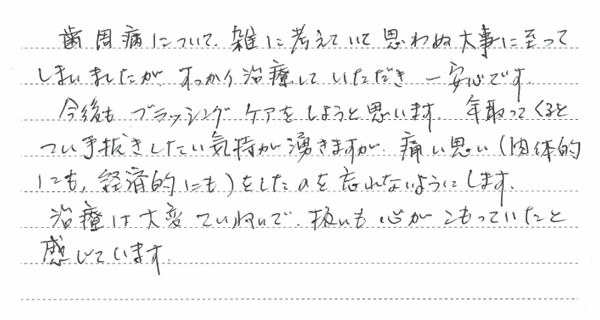 歯周病について、雑に考えていて思わぬ大事に至って
しまいましたが、すっかり治療していただき一安心です。
今後もブラッシングケアをしようと思います。年取ってくると
つい手抜きしたい気持が湧きますが、痛い思い(肉体的
にも、経済的にも)をしたのを忘れないようにします。
治療は大変ていねいで、扱いも心がこもっていたと
感じています。